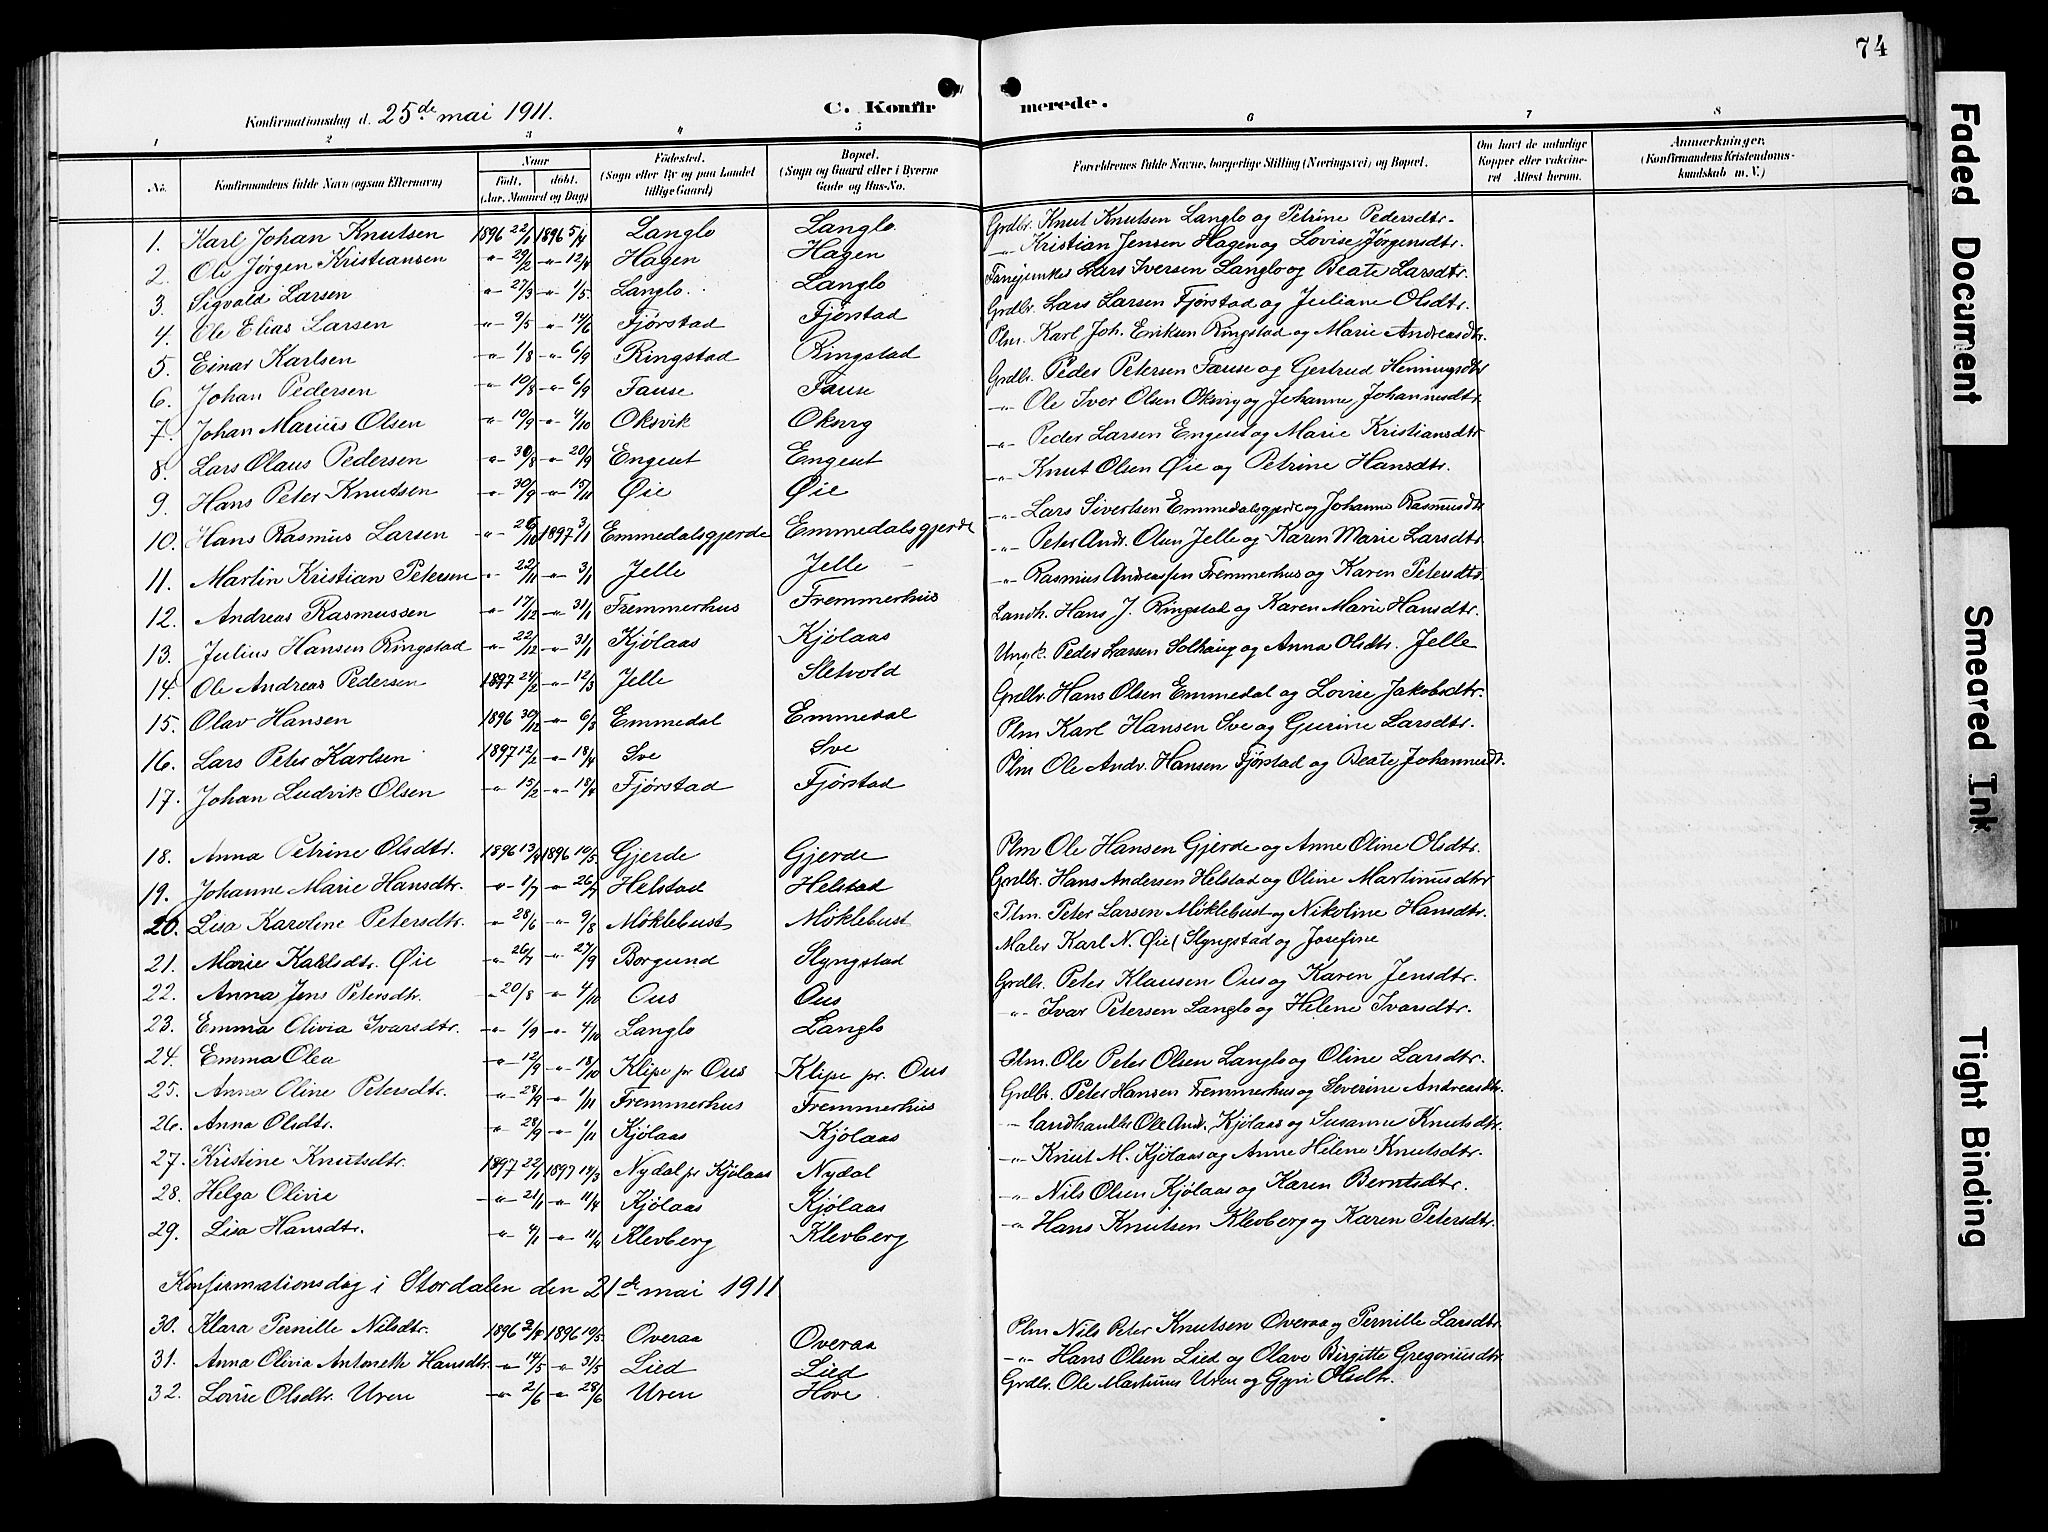 74
Konfirmationsdag d. 25de mai 1911. C. Konfirmerede.
1 2 3 4 5 6 7 8
No. Konfirmandens fulde Navn (ogsaa Efternavn) Naar født, døbt. (Aar, Maaned og Dag) Fødested. (Sogn eller By og paa Landet tillige Gaard) Bopæl. (Sogn og Gaard eller i Byerne Gade og Hus-No. Forældrenes fulde Navne, borgerlige Stilling (Næringsvei) og Bopæl. Om havt de naturlige Kopper eller vakcineret Attest herom. Anmærkninger. (Konfirmandens Kristendomskundskab m. V.)
1. Karl Johan Knutsen 1896 22/1 1896 5/4 Langlo Langlo Grdbr. Knut Knutsen Langlo og Petrine Pedersdtr.
2. Ole Jørgen Kristiansen -"- 29/2 -"- 12/4 Hagen Hagen -"- Kristian Jensen Hagen og Lovise Jørgensdtr.
3. Sigvald Larsen -"- 27/3 -"- 1/5 Langlo Langlo Fanejunker Lars Iversen Langlo og Beate Larsdtr.
4. Ole Elias Larsen -"- 9/5 -"- 14/6 Fjørstad Fjørstad Grdbr. Lars Larsen Fjørstad og Juliane Olsdtr.
5. Einar Karlsen -"- 1/8 -"- 6/9 Ringstad Ringstad Plm. Karl Joh. Eriksen Ringstad og Marie Andreasdtr.
6. Johan Pedersen -"- 10/8 -"- 6/9 Fause Fause Grdbr. Peder Petersen Fause og Gertrud Henningsdtr
7. Johan Marius Olsen -"- 10/9 -"- 4/10 Oksvik Oksvig -"- Ole Iver Olsen Oksvig og Johanne Johannesdtr.
8. Lars Olaus Pedersen -"- 30/8 -"- 20/9 Engeset Engeset -"- Peder Larsen Engeset og Marie Kristiansdtr
9. Hans Peter Knudsen -"- 30/9 -"- 15/11 Øie Øie -"- Knut Olsen Øie og Petrine Hansdtr.
10. Hans Rasmus Larsen -"- 26/10 1897 3/1 Emmedalsgjerde Emmedalsgjerde -"- Lars Sivertsen Emmedalsgjerde og Johanne Rasmusdtr
11. Martin Kristian Petersen -"- 22/11 -"- 3/1 Jelle Jelle -"- Peter Andr. Olsen Jelle og Karen Marie Larsdtr
12. Andreas Rasmussen -"- 17/12 -"- 31/1 Fremmerhus Fremmerhus -"- Rasmus Andreassen Fremmerhus og Karen Petersdtr.
13. Julius Hansen Ringstad -"- 22/12 -"- 31/1 Kjølaas Kjølaas Landh. Hans J. Ringstad og Karen Marie Hansdtr.
14. Ole Andreas Pedersen 1897 24/2 -"- 12/3 Jelle Sletvold Ungk. Peder Larsen Solhaug og Anna Olsdtr. Jelle
15. Olav Hansen 1896 30/12 -"- 6/3 Emmedal Emmedal Grdbr. Hans Olsen Emmedal og Lovise Jakobsdtr.
16. Lars Peter Karlsen 1897 12/2 -"- 18/4 Sve Sve Plm Karl Hansen Sve og Gurine Larsdtr.
17. Johan Ludvik Olsen -"- 15/2 -"- 18/4 Fjørstad Fjørstad Plm Ole Andr. Hansen Fjørstad og Beate Johannesdtr.
18. Anna Petrine Olsdtr. 1896 13/4 1896 10/5 Gjerde Gjerde Plm Ole Hansen Gjerde og Anne Oline Olsdtr.
19. Johanne Marie Hansdtr. -"- 1/7 -"- 26/7 Helstad Helstad Grdbr. Hans Andersen Helstad og Oline Martinusdtr
20. Lisa Karoline Petersdtr. -"- 28/6 -"- 9/8 Møklebust Møklebust Plm. Peter Larsen Møklebust og Nikoline Hansdtr.
21. Marie Karlsdtr. Øie -"- 26/7 -"- 27/9 Borgund Slyngstad Maler Karl N. Øie (Slyngstad og Josefine
22. Anna Jens Petersdtr. -"- 20/8 -"- 4/10 Ous Ous Grdbr. Peter Klausen Ous og Karen Jensdtr.
23. Emma Olivia Ivarsdtr. -"- 1/9 -"- 4/10 Langlo Langlo -"- Ivar Petersen Langlo og Helene Ivarsdtr.
24. Emma Olea -"- 12/9 -"- 18/10 Klipe pr Ous Klipe pr. Ous Plm. Ole Peter Olsen Langlo og Oline Larsdtr.
25. Anna Oline Petersdtr. -"- 28/9 -"- 1/11 Fremmerhus Fremmerhus Grdbr. Peter Hansen Fremmerhus og Severine Andreasdtr.
26. Anna Olsdtr. -"- 28/9 -"- 1/11 Kjølaas Kjølaas - Landhandler Ole And. Kjølaas og Susanne Knutsdtr.
27. Kristine Knutsdtr. 1897 22/1 1897 14/3 Nydal pr Kjølaas Nydal -"- Knut M. Kjølaas og Anne Helene Knutsdtr.
28. Helga Olivie -"- 21/1 -"- 11/4 Kjølaas Kjølaas -"- Nils Olsen Kjølaas og Karen Berntsdtr.
29. Lisa Hansdtr. -"- 4/1 -"- 11/4 Klevberg Klevberg -"- Hans Knutsen Klevberg og Karen Petersdtr.
Konfirmationsdag i Stordalen den 21de mai 1911
30. Klara Pernille Nilsdtr. 1896 2/4 1896 19/5 Overaa Overaa Plm Nils Peter Knutsen Overaa og Pernille Larsdtr
31. Anna Olivia Antoneth Hansdtr. -"- 14/5 -"- 31/5 Lied Lied -"- Hans Olsen Lied og Olave Birgitte Gregoriusdtr
32. Lovise Olsdtr. Uren -"- 2/6 -"- 28/6 Uren Hove Grdbr. Ole Martinus Uren og Gyri Olsdtr.
Faded Document
Smeared Ink
Tight Binding